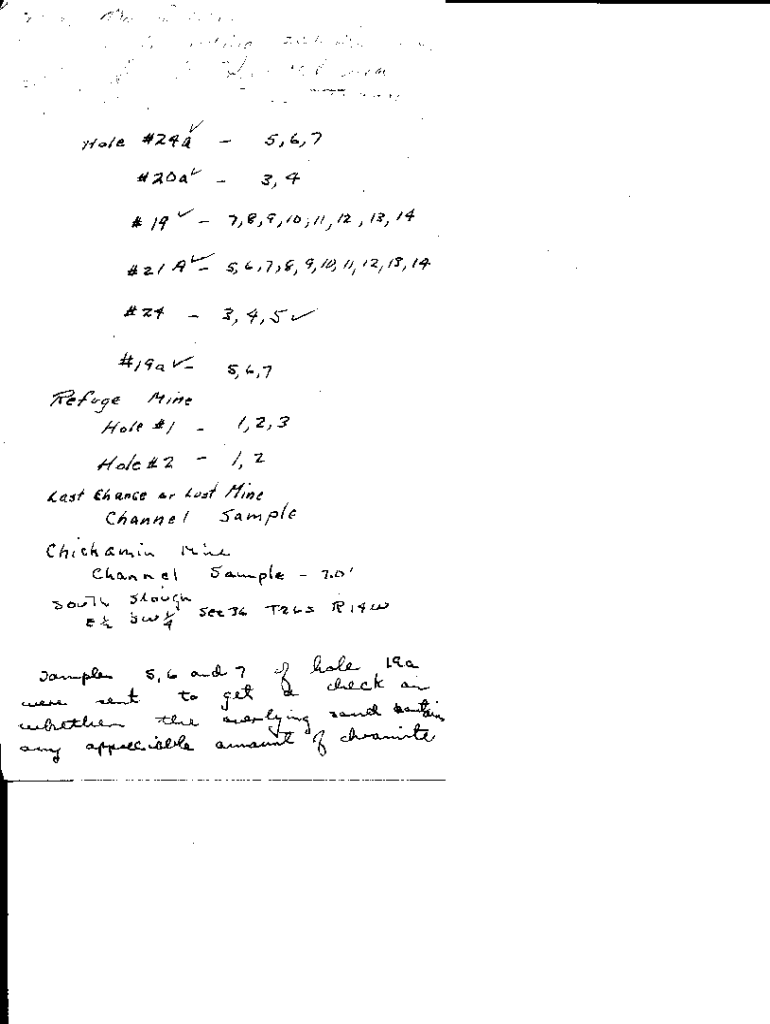 Hole #24a ✓ - 5,6,7
#20a ✓ - 3,4
#19 ✓ - 7,8,9,10,11,12,13,14
#21A ✓ - 5,6,7,8,9,10,11,12,13,14
#24 - 3,4,5 ✓
#19a ✓ - 5,6,7
Refuge Mine
Hole #1 - 1,2,3
Hole #2 - 1,2
Last Chance or Lost Mine
Channel Sample
Chickamin Mine
Channel Sample - 7.0'
South Slough
E½ SW¼ Sec 36 T26S R14W
Samples 5,6 and 7 of hole 19a
were sent to get a check on
whether the overlying sand contains
any appreciable amount of chromite